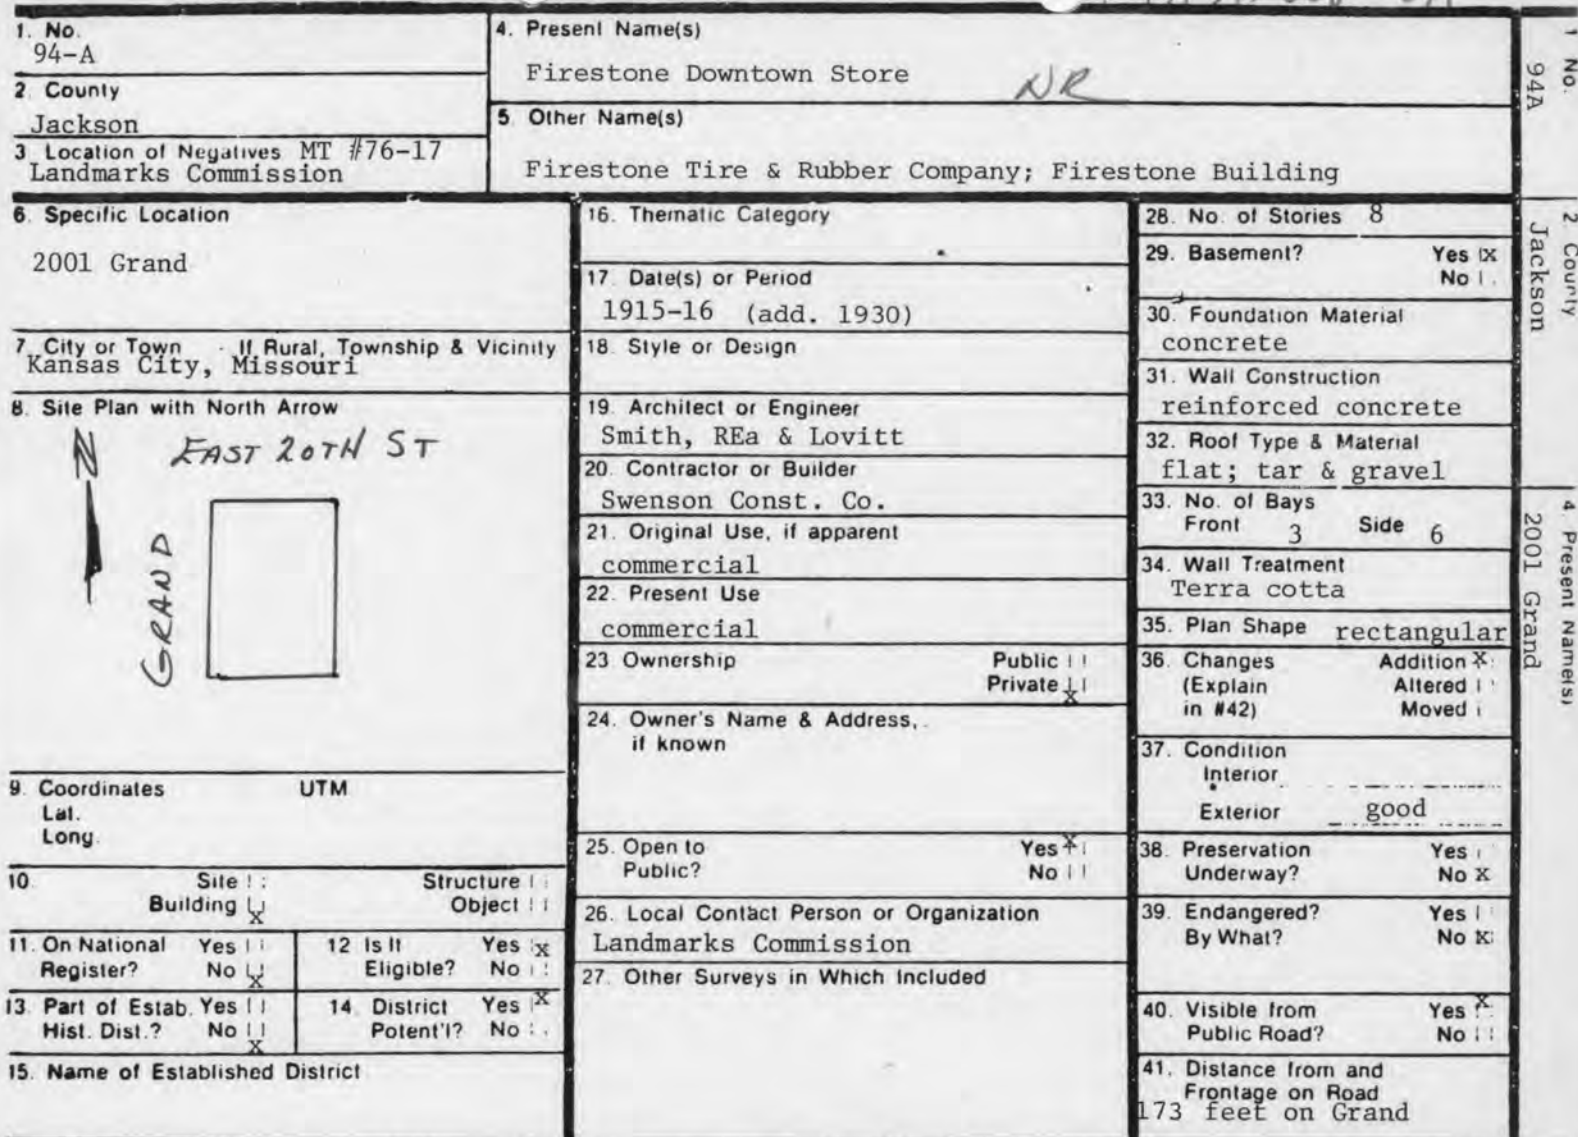 1. No.
94-A
2. County
Jackson
3. Location of Negatives MT #76-17
Landmarks Commission
4. Present Name(s)
Firestone Downtown Store
NR
5. Other Name(s)
Firestone Tire & Rubber Company; Firestone Building
6. Specific Location
2001 Grand
7. City or Town If Rural, Township & Vicinity
Kansas City, Missouri
8. Site Plan with North Arrow
N
EAST 20TH ST
GRAND
9. Coordinates UTM
Lat.
Long.
10. Site Structure
Building X Object
11. On National Yes
Register? No X
12 Is It Yes X
Eligible? No
13. Part of Estab. Yes
Hist. Dist.? No X
14. District Yes X
Potent'l? No
15. Name of Established District
16. Thematic Category
17. Date(s) or Period
1915-16 (add. 1930)
18. Style or Design
19. Architect or Engineer
Smith, REa & Lovitt
20. Contractor or Builder
Swenson Const. Co.
21. Original Use, if apparent
commercial
22. Present Use
commercial
23 Ownership Public
Private X
24. Owner's Name & Address,
if known
25. Open to Yes X
Public? No
26. Local Contact Person or Organization
Landmarks Commission
27. Other Surveys in Which Included
28. No. of Stories 8
29. Basement? Yes X
No
30. Foundation Material
concrete
31. Wall Construction
reinforced concrete
32. Roof Type & Material
flat; tar & gravel
33. No. of Bays
Front 3 Side 6
34. Wall Treatment
Terra cotta
35. Plan Shape rectangular
36. Changes Addition X
(Explain Altered
in #42) Moved
37. Condition
Interior
Exterior good
38. Preservation Yes
Underway? No X
39. Endangered? Yes
By What? No X
40. Visible from Yes X
Public Road? No
41. Distance from and
Frontage on Road
173 feet on Grand
1 No.
94A
2. County
Jackson
4. Present Name(s)
2001 Grand